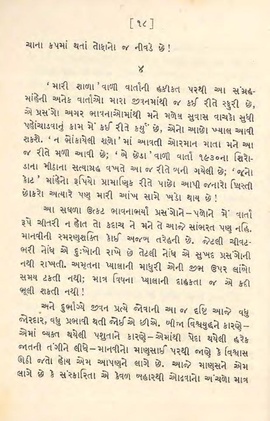 [ ૧૮ ]
ચાના કપમાં થતાં તોફાનો જ નીવડે છે !
૪
'મારી શાળા' વાળી વાર્તાની હકીકત પરથી આ સંગ્રહ-
માંહેની અનેક વાર્તાઓ મારા જીવનમાંથી જ કઈ રીતે સ્ફુરી છે,
એ પ્રસંગો અમર ભાવનાઓમાંથી મને મળેલ સુવાસ વાચકો સુધી
પહોંચાડવાનું કામ મેં કઈ રીતે કર્યું” છે, એનો આછો ખ્યાલ આવી
શકશે. 'ન ભોંકાયેલી શૂળો'માં આવતી આરમાન માતા મને આ
જ રીતે મળી આવી છે; 'બે છેડા' વાળી વાર્તા ૧૯૩૦ના શિરો-
ડાના મીઠાના સત્યાગ્રહ વખતે આ જ રીતે બની ગયેલી છે; 'જૂનો
કોટ' માંહેના રૂપિયો પ્રામાણિક રીતે પાછો આપી જનારો ખ્રિસ્તી
છોકરો અત્યારે પણ મારી આંખ સામે ખડો થાય છે !
આ સઘળા ઉત્કટ ભાવનાભર્યા પ્રસંગોને—પળોને મેં વાર્તા
રૂપે ચીતરી ન હોત તો કદાચ ને મને તે આજે સાંભરત પણ નહિ.
માનવીની સ્મરણશક્તિ કોઈ અજબ તરેહની છે. જેટલી ચીવટ-
ભરી નોંધ એ દુઃખોની રાખે છે તેટલી નોંધ એ સુખદ પ્રસંગોની
નથી રાખતી. અમૃતના પ્યાલાની માધુરી એની જીભ ઉપર લાંબો
સમય ટકતી નથી; માત્ર વિષના પ્યાલાની દાહકતા જ એ કદી
ભૂલી શકતી નથી !
અને દુર્ભાગ્યે જીવન પ્રત્યે જોવાની આ જ દૃષ્ટિ આજે વધુ
જોરદાર, વધુ પ્રભાવી થતી જોઈએ છીએ. બીજા વિશ્વયુદ્ધને કારણે—
એમાં વ્યક્ત થયેલી પશુતાને કારણે—એમાંથી પેદા થયેલી હરેક
જાતની તંગીને લીધે—માનવીનો માણસાઈ પરથી જાણે કે વિશ્વાસ
ઊઠી જતો હોય એમ આપણને લાગે છે. આજે માણસને એમ
લાગે છે કે સંસ્કારિતા એ કેવળ બહારથી ઓઢવાનો અંચળો માત્ર